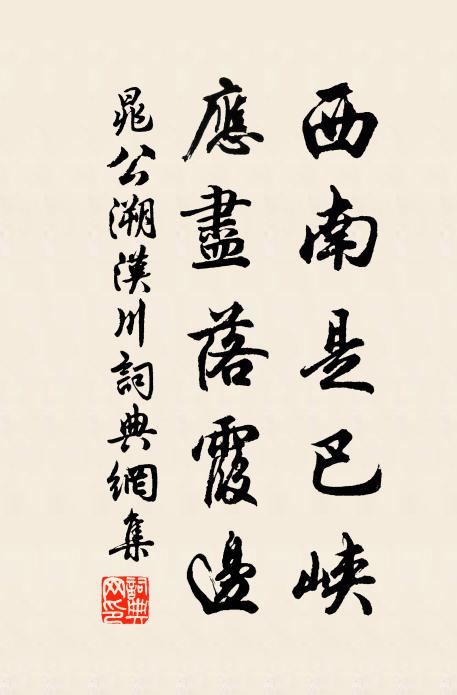 西南是巴峽
應盡落霞邊
晁公溯漢川詞典網集
詞典网印